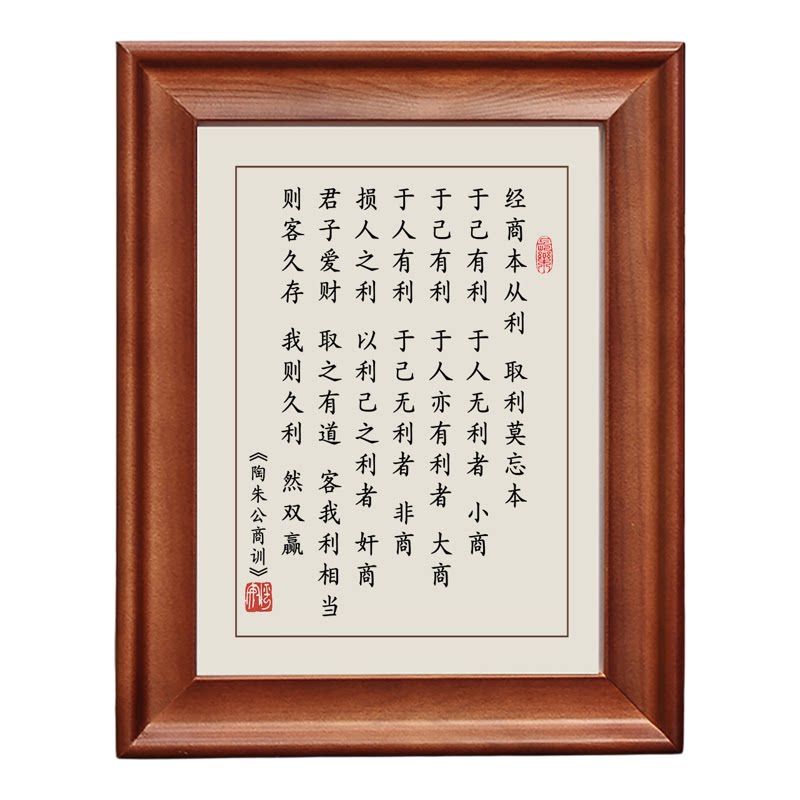 经商本从利 取利莫忘本
于己有利 于人无利者 小商
于己有利 于人亦有利者 大商
于人有利 于己无利者 非商
损人之利 以利己之利者 奸商
君子爱财 取之有道 客我利相当
则客久存 我则久利 然双赢
《陶朱公商训》